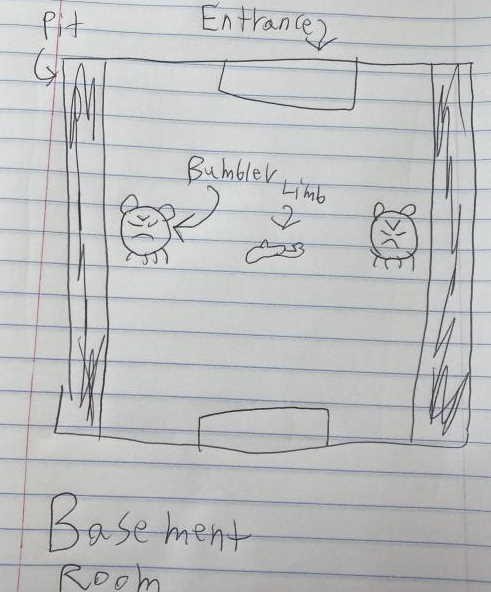 Pit
Entrance
Bumbler
Limb
Basement
Room